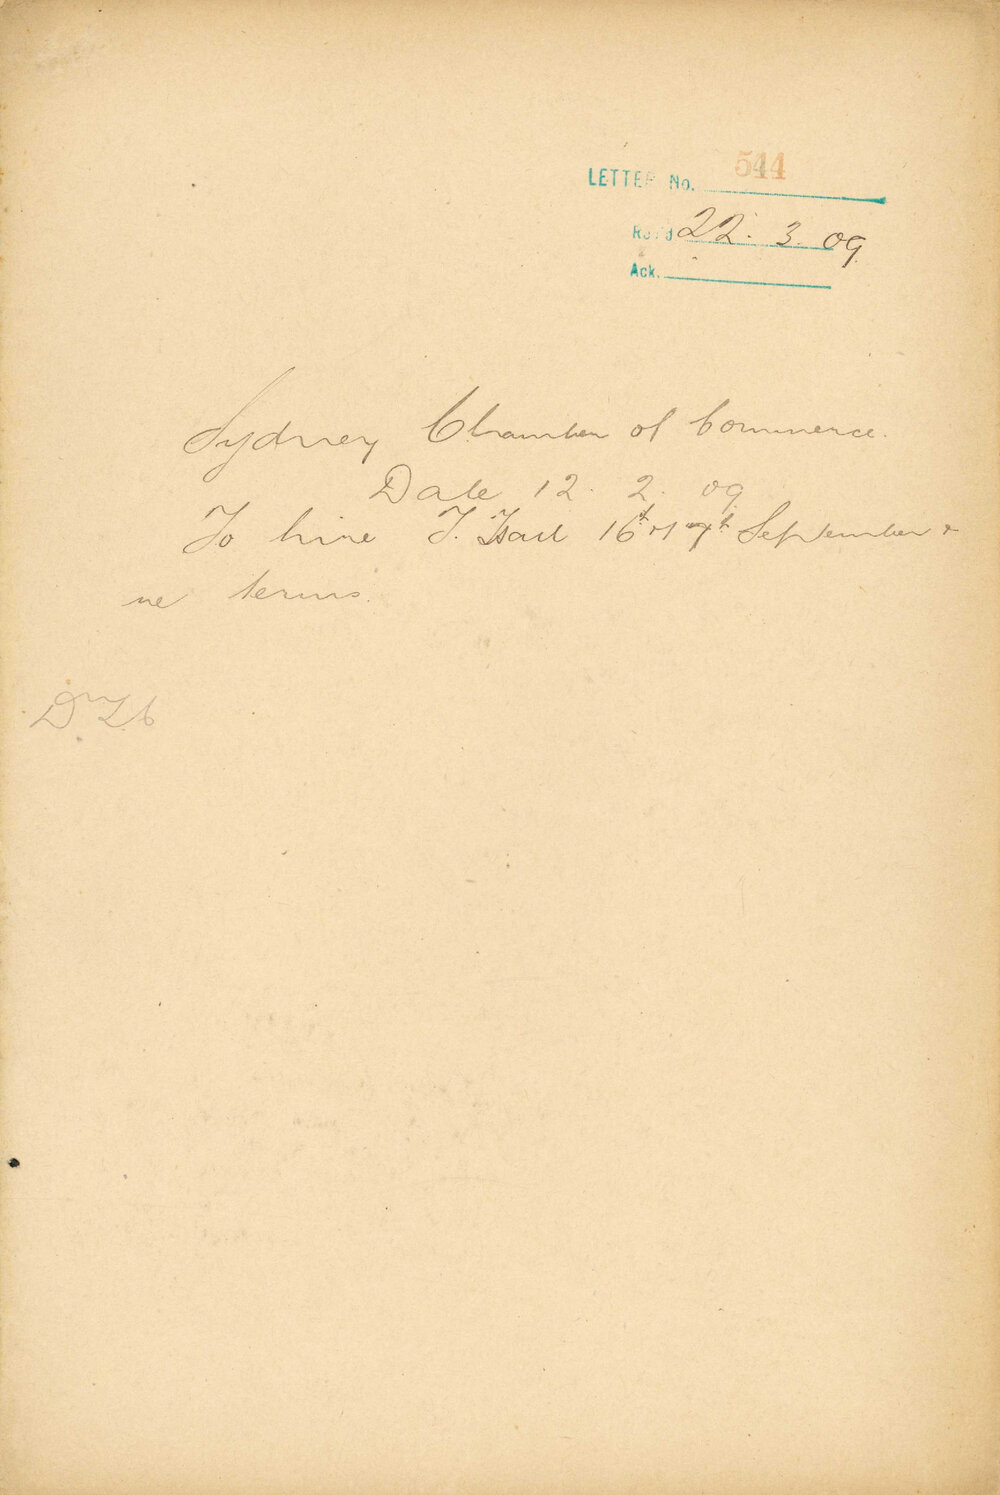 LETTER No. 544
Rec'd 22. 3. 09.
Ack.
Sydney Chamber of Commerce.
Date 12. 2. 09
To hire T. Hall 16th & 17th September &
re terms.